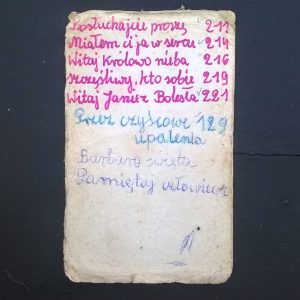 Posłuchajcie proszę 211
Miałem ci ja w sercu 214
Witaj Królowo nieba 216
szczęśliwy, kto sobie 219
Witaj Janie z Bolesła 221
Przez czyścowe 129
upalenia
Barbaro święta
Pamiętaj człowiecze